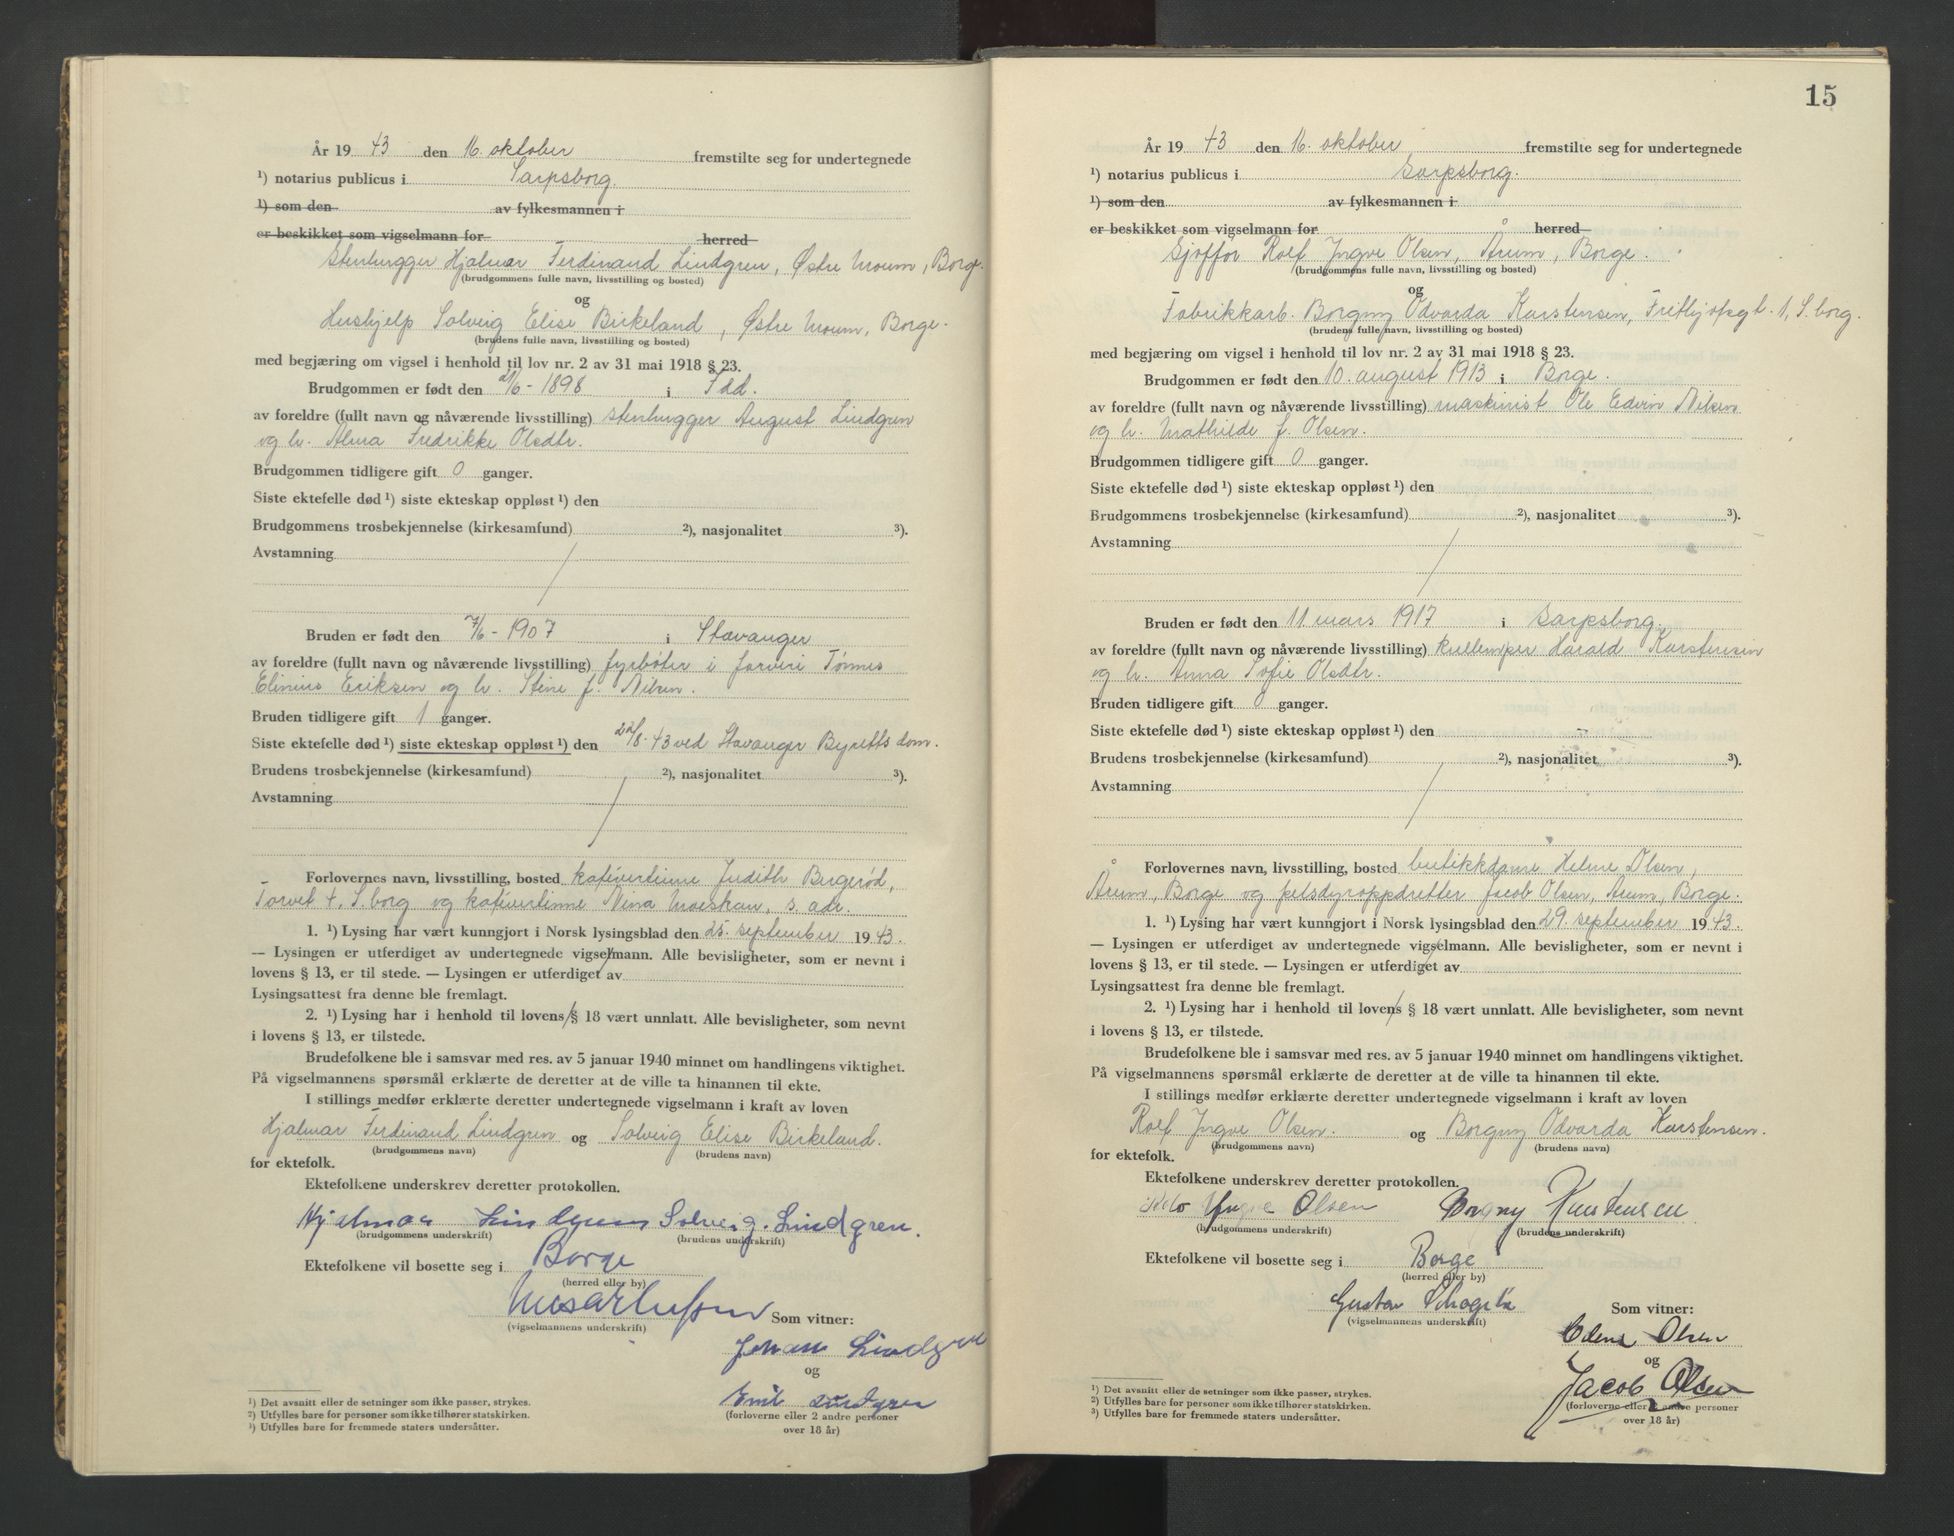 År 19 43 den 16. oktober fremstilte seg for undertegnede
¹) notarius publicus i Sarpsborg.
¹) som den av fylkesmannen i
er beskikket som vigselmann for herred
Stenhugger Hjalmar Ferdinand Lindgren, Østre Moum, Borge.
(brudgommens fulle navn, livsstilling og bosted)
og
Hushjelp Solveig Elise Birkeland, Østre Moum, Borge.
(brudens fulle navn, livsstilling og bosted)
med begjæring om vigsel i henhold til lov nr. 2 av 31 mai 1918 § 23.
Brudgommen er født den /6 - 1898 i Idd.
av foreldre (fullt navn og nåværende livsstilling) stenhugger August Lindgren
og h. Alma Fredrikke Olsdtr.
Brudgommen tidligere gift 0 ganger.
Siste ektefelle død ¹) siste ekteskap oppløst ¹) den
Brudgommens trosbekjennelse (kirkesamfund) ²), nasjonalitet ³).
Avstamning
Bruden er født den 7/6 - 1907 i Stavanger
av foreldre (fullt navn og nåværende livsstilling) fyrbøter i farveri Tønnes
Elinius Eriksen og h. Stine f. Nilsen.
Bruden tidligere gift 1 ganger.
Siste ektefelle død ¹) siste ekteskap oppløst ¹) den 22/8-43 ved Stavanger Byretts dom.
Brudens trosbekjennelse (kirkesamfund) ²), nasjonalitet ³).
Avstamning
Forlovernes navn, livsstilling, bosted kafévertinne Judith Bugerød,
Torvet 4, S.borg og kafévertinne Nina Moeskau, s. adr.
1. ¹) Lysing har vært kunngjort i Norsk lysingsblad den 25. september 19 43.
— Lysingen er utferdiget av undertegnede vigselmann. Alle bevisligheter, som er nevnt i
lovens § 13, er til stede. — Lysingen er utferdiget av
Lysingsattest fra denne ble fremlagt.
2. ¹) Lysing har i henhold til lovens § 18 vært unnlatt. Alle bevisligheter, som nevnt
i lovens § 13, er tilstede.
Brudefolkene ble i samsvar med res. av 5 januar 1940 minnet om handlingens viktighet.
På vigselmannens spørsmål erklærte de deretter at de ville ta hinannen til ekte.
I stillings medfør erklærte deretter undertegnede vigselmann i kraft av loven
Hjalmar Ferdinand Lindgren og Solveig Elise Birkeland.
(brudgommens navn) (brudens navn)
for ektefolk.
Ektefolkene underskrev deretter protokollen.
Hjalmar Lindgren Solveig Lindgren.
(brudgommens underskrift) (brudens underskrift)
Ektefolkene vil bosette seg i Borge
(herred eller by)
Som vitner:
(vigselmannens underskrift)
Johan Lindgren
og
Emil Lindgren
(forloverne eller 2 andre personer
over 18 år)
¹) Det avsnitt eller de setninger som ikke passer, strykes.
²) Utfylles bare for personer som ikke tilhører statskirken.
³) Utfylles bare for fremmede staters undersåtter.
15
År 19 43 den 16. oktober fremstilte seg for undertegnede
¹) notarius publicus i Sarpsborg.
¹) som den av fylkesmannen i
er beskikket som vigselmann for herred
Sjøffør Rolf Yngve Olsen, Årum, Borge.
(brudgommens fulle navn, livsstilling og bosted)
og
Fabrikkarb. Borgny Odvarda Karstensen, Fritjofsgt. 1, S.borg.
(brudens fulle navn, livsstilling og bosted)
med begjæring om vigsel i henhold til lov nr. 2 av 31 mai 1918 § 23.
Brudgommen er født den 10. august 1913 i Borge.
av foreldre (fullt navn og nåværende livsstilling) maskinist Ole Edvin Nilsen
og h. Mathilde f. Olsen.
Brudgommen tidligere gift 0 ganger.
Siste ektefelle død ¹) siste ekteskap oppløst ¹) den
Brudgommens trosbekjennelse (kirkesamfund) ²), nasjonalitet ³).
Avstamning
Bruden er født den 11. mars 1917 i Sarpsborg.
av foreldre (fullt navn og nåværende livsstilling) kullemper Harald Karstensen
og h. Anna Sofie Olsdtr.
Bruden tidligere gift 0 ganger.
Siste ektefelle død ¹) siste ekteskap oppløst ¹) den
Brudens trosbekjennelse (kirkesamfund) ²), nasjonalitet ³).
Avstamning
Forlovernes navn, livsstilling, bosted butikkdame Helene Olsen,
Årum, Borge og pelsdyroppdretter Jacob Olsen, Årum, Borge.
1. ¹) Lysing har vært kunngjort i Norsk lysingsblad den 29. september 19 43.
— Lysingen er utferdiget av undertegnede vigselmann. Alle bevisligheter, som er nevnt i
lovens § 13, er til stede. — Lysingen er utferdiget av
Lysingsattest fra denne ble fremlagt.
2. ¹) Lysing har i henhold til lovens § 18 vært unnlatt. Alle bevisligheter, som nevnt
i lovens § 13, er tilstede.
Brudefolkene ble i samsvar med res. av 5 januar 1940 minnet om handlingens viktighet.
På vigselmannens spørsmål erklærte de deretter at de ville ta hinannen til ekte.
I stillings medfør erklærte deretter undertegnede vigselmann i kraft av loven
Rolf Yngve Olsen. og Borgny Odvarda Karstensen.
(brudgommens navn) (brudens navn)
for ektefolk.
Ektefolkene underskrev deretter protokollen.
Yngve Olsen Borgny Karstensen
(brudgommens underskrift) (brudens underskrift)
Ektefolkene vil bosette seg i Borge
(herred eller by)
Gustav Som vitner:
(vigselmannens underskrift)
Olsen
og
Jacob Olsen
(forloverne eller 2 andre personer
over 18 år)
¹) Det avsnitt eller de setninger som ikke passer, strykes.
²) Utfylles bare for personer som ikke tilhører statskirken.
³) Utfylles bare for fremmede staters undersåtter.